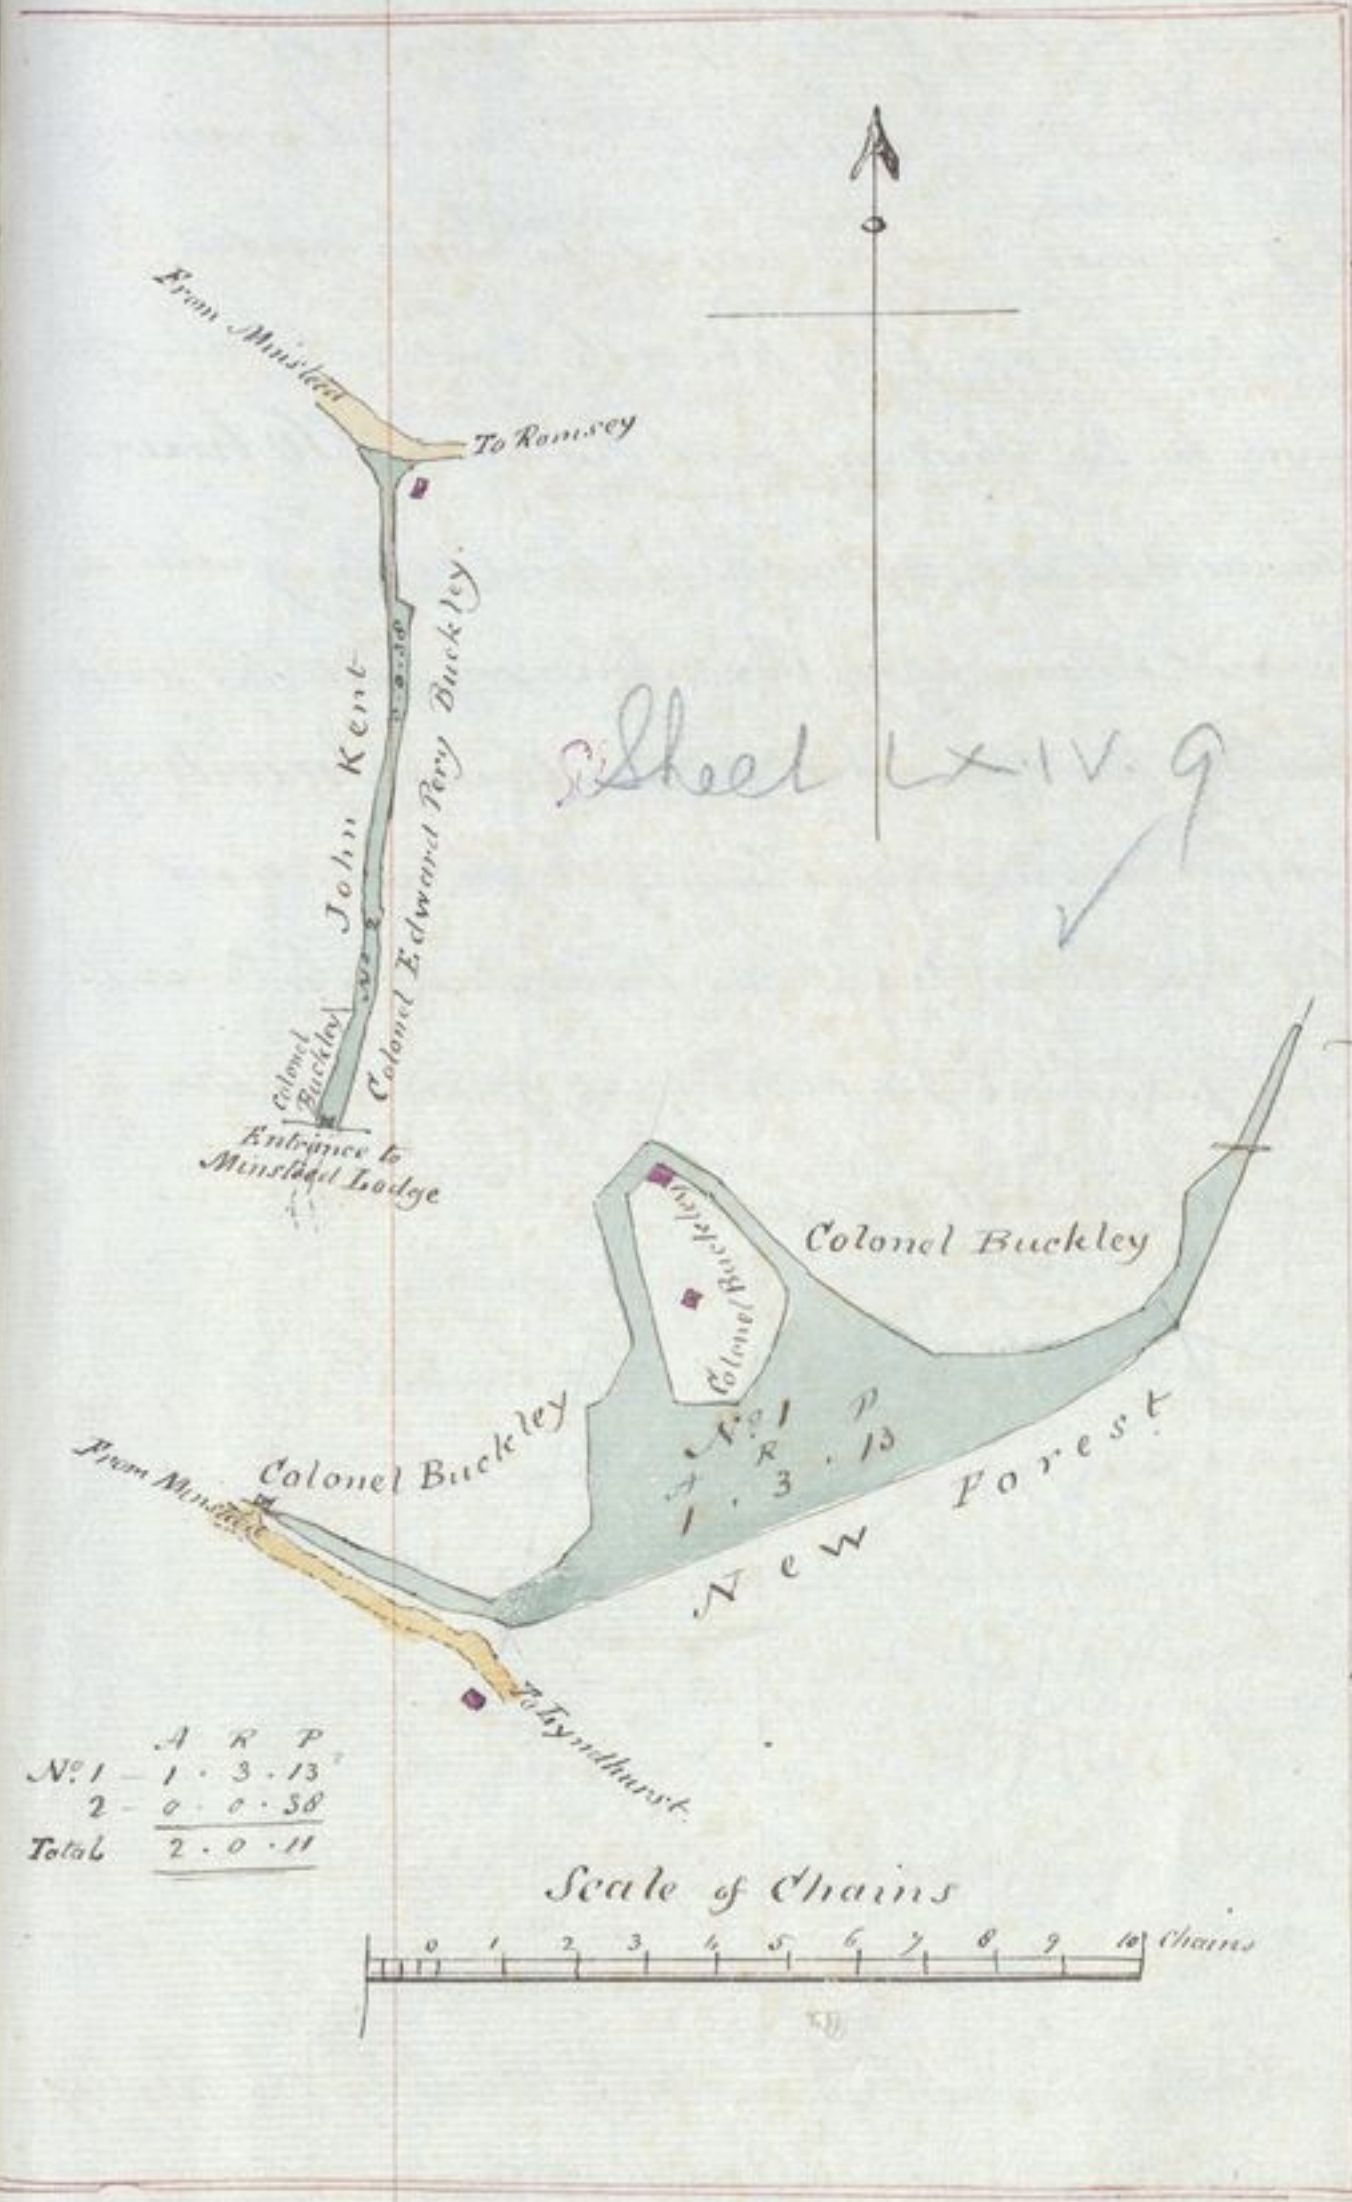 From Minstead
To Romsey
0.0.38
John Kent
Colonel Edward Pery Buckley.
No 2
Colonel
Buckley
Entrance to
Minstead Lodge
Sheet LXIV. 9
Colonel Buckley
Colonel Buckley
Colonel Buckley
No. 1
A R P
1 . 3 . 13
New Forest
From Minstead
To Lyndhurst
A R P
No. 1 - 1 . 3 . 13
2 - 0 . 0 . 38
Total 2 . 0 . 11
Scale of Chains
0 1 2 3 4 5 6 7 8 9 10 Chains